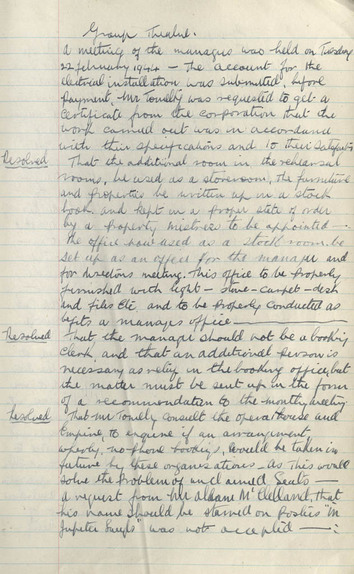 Group Theatre.
A meeting of the managers was held on Tuesday
22 February 1944 - The account for the
electrical installation was submitted, before
payment, Mr Tomelty was requested to get a
certificate from the corporation that the
work carried out was in accordance
with their specifications and to their satisfaction
Resolved That the additional room in the rehearsal
rooms, be used as a storeroom, the furniture
and properties be written up in a stock
book, and kept in a proper state of order
by a Property Mistress to be appointed -
The office now used as a stock room be
set up as an office for the manager and
for directors meeting. This office to be properly
furnished with light - stove - carpet - desk
and files etc, and to be properly conducted as
befits a managers office
Resolved That the manager should not be a booking
clerk, and that an additional person is
necessary as relief in the booking office, but
the matter must be sent up in the form
of a recommendation to the monthly meeting
Resolved That Mr Tomelty consult the opera house and
Empire, to enquire if an arrangement
whereby, no phone bookings, would be taken in
future by these organisations - As this would
solve the problem of unclaimed seats -
a request from Mr Aldane McClelland, that
his name should be starred on posters "in
Jupiter Laughs" was not accepted